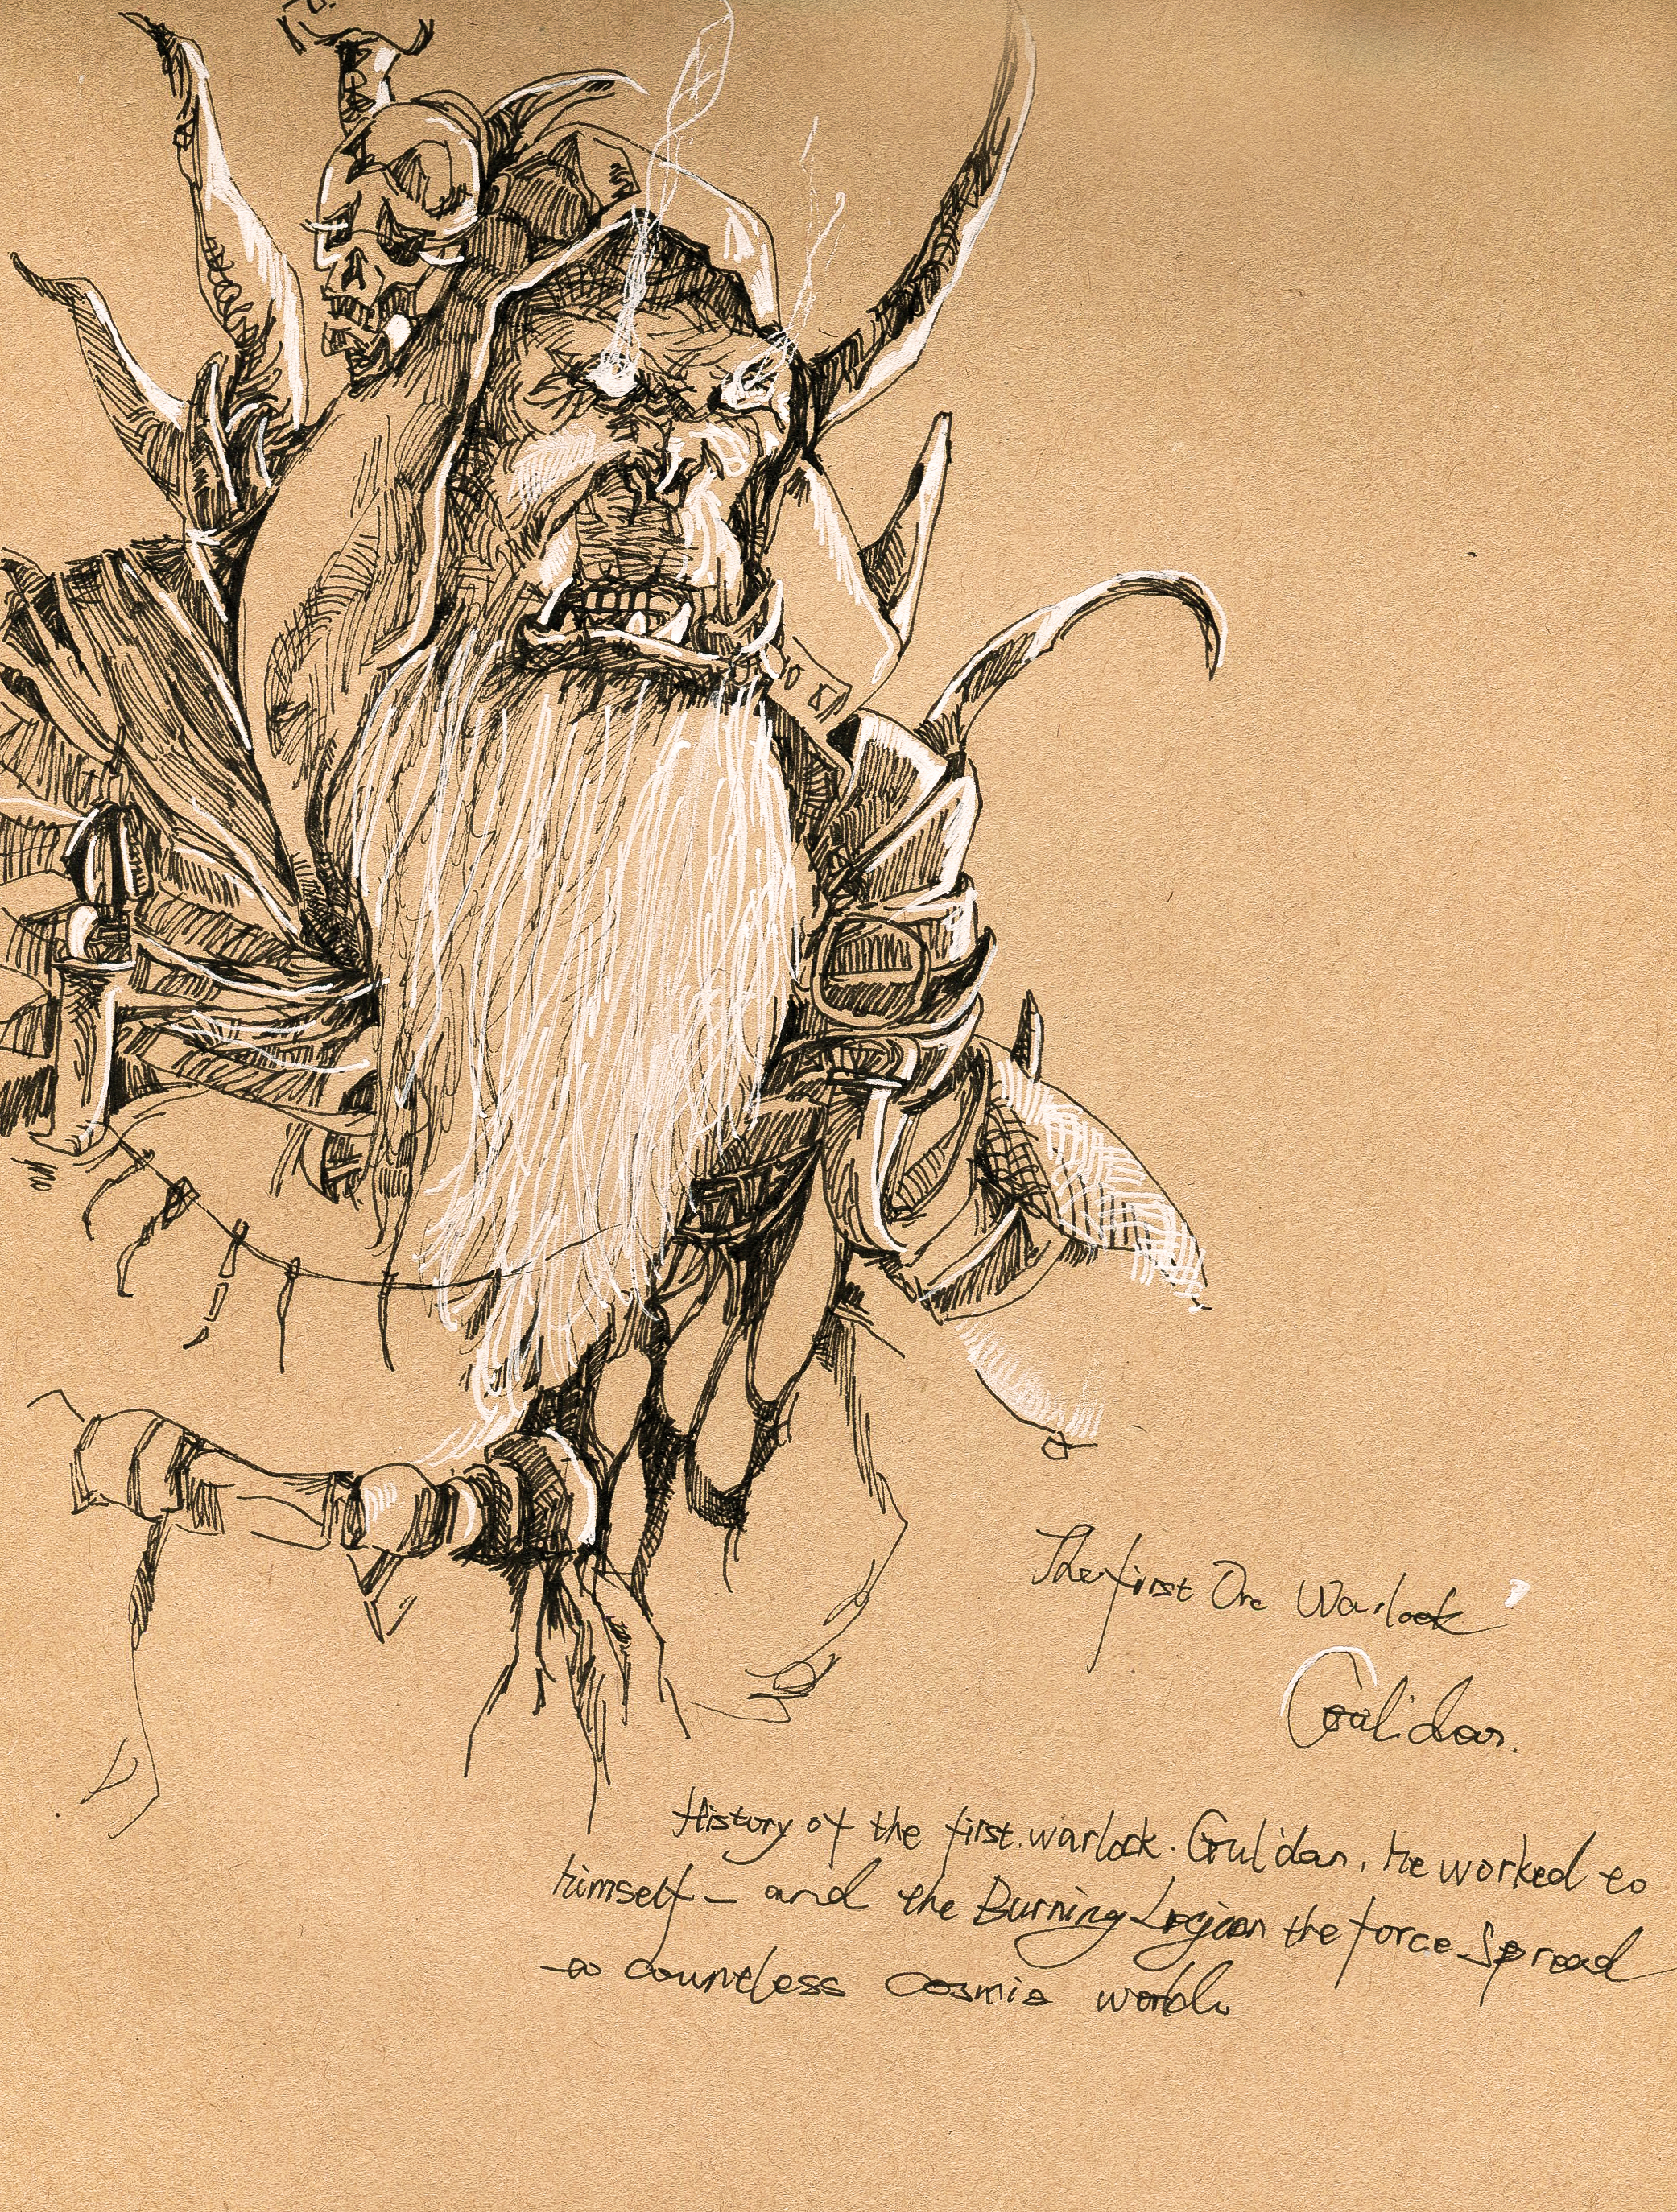 The first Orc Warlock
Gul'dan.
History of the first. warlock. Gul'dan, he worked to
himself - and the Burning Legion the force spread
to countless cosmic world.